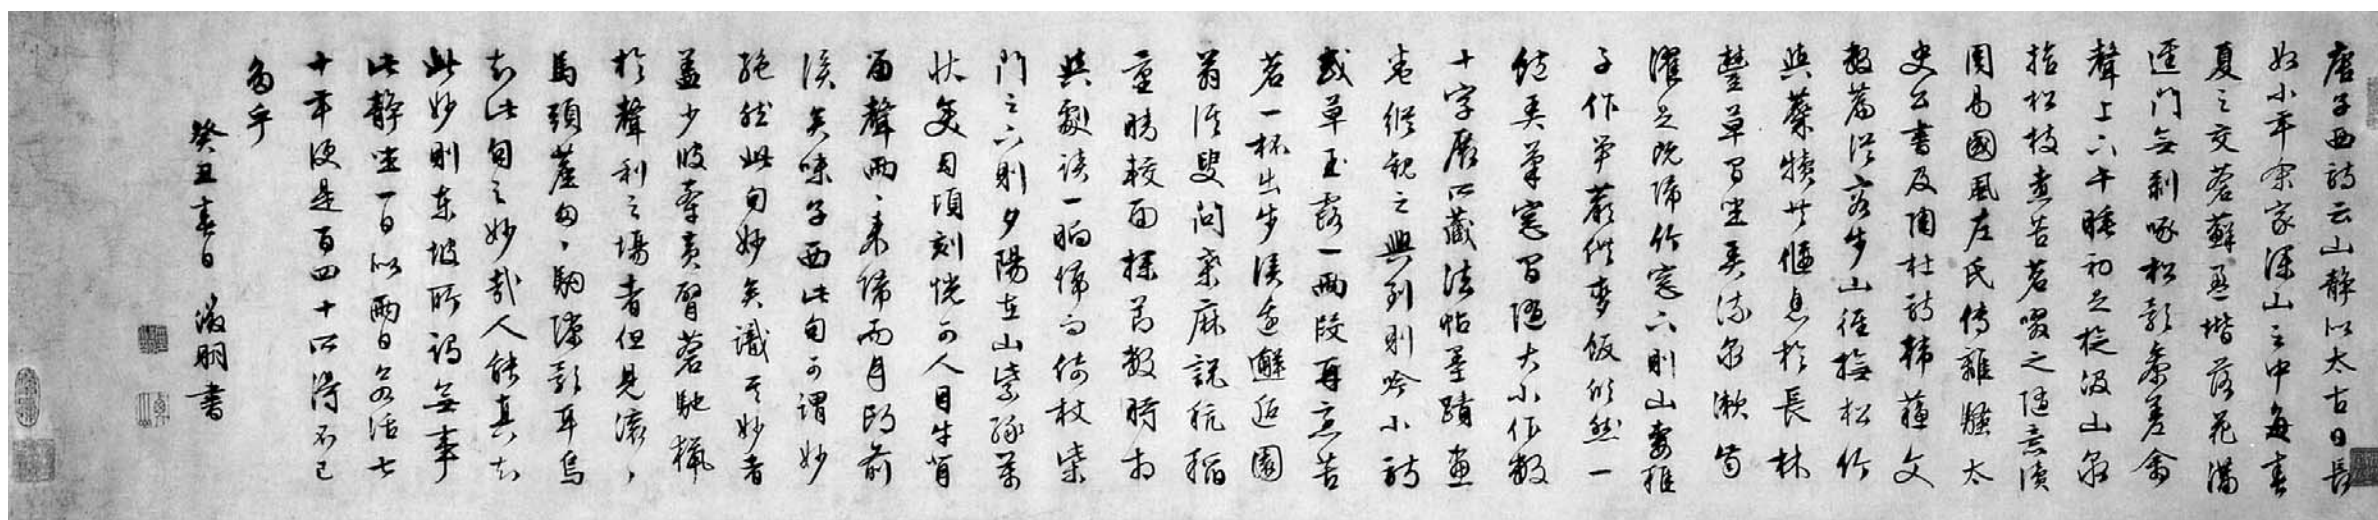 唐子西詩云山靜似太古日長
如小年余家深山之中每春
夏之交蒼蘚盈堦落花滿
逕門無剥啄松影參差禽
聲上下午睡初足旋汲山泉
拾松枝煮苦茗啜之随意讀
周易國風左氏傳離騷太
史公書及陶杜詩韓蘇文
數篇從容步山徑撫松竹
與麋犢共偃息於長林
豐草間坐弄流泉漱齒
濯足既歸竹窓下則山妻稚
子作筍蕨供麥飯欣然一
飽弄筆窓間随大小作數
十字展所藏法帖墨蹟畫
卷縱觀之興到則吟小詩
或草玉露一兩段再烹苦
茗一杯出步溪邊邂逅園
翁溪叟問桑麻說秔稻
量晴校雨探節數時相
與劇談一晌歸而倚杖柴
門之下則夕陽在山紫綠萬
狀變幻頃刻怳可人目牛背
笛聲兩兩来歸而月印前
溪矣味子西此句可謂妙
絶然此句妙矣識其妙者
蓋少彼牽黄臂蒼馳獵
於聲利之場者但見滚滚
馬頭塵匆匆駒隙影耳烏
知此句之妙哉人能真知
此妙則東坡所謂無事
此靜坐一日似兩日若活七
十年便是百四十所得不已
多乎
癸丑春日 徵明書